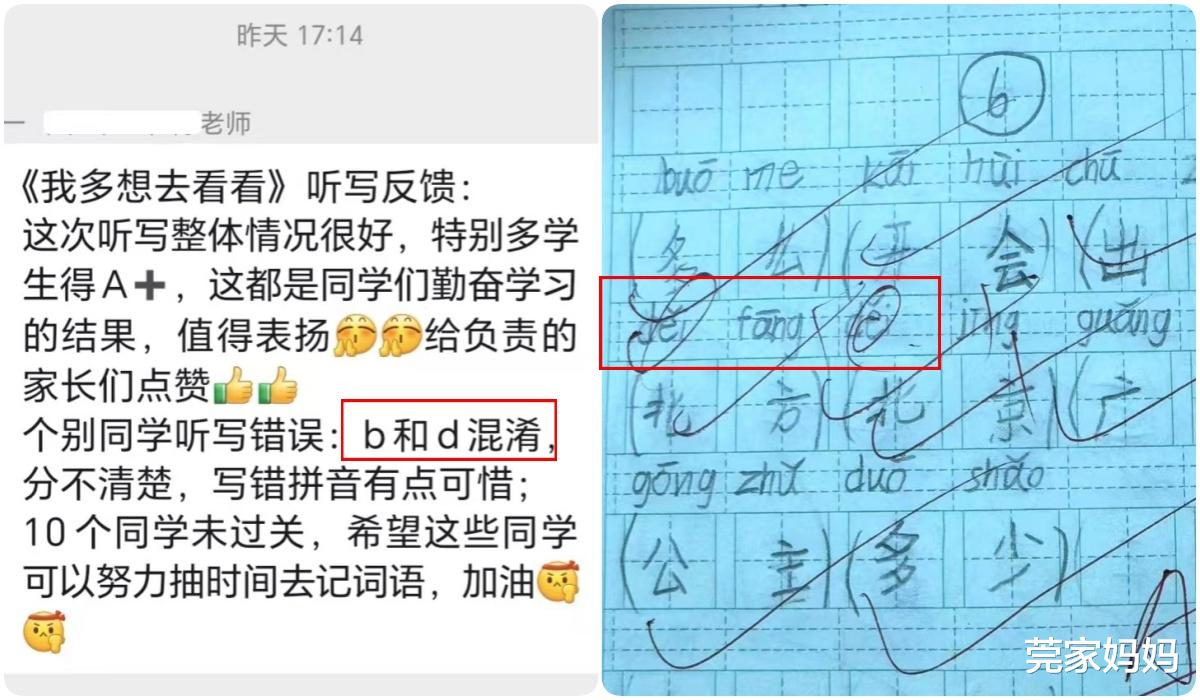 昨天 17:14
老师
《我多想去看看》听写反馈：
这次听写整体情况很好，特别多学
生得A➕，这都是同学们勤奋学习
的结果，值得表扬给负责的
家长们点赞👍👍
个别同学听写错误：b和d混淆，
分不清楚，写错拼音有点可惜；
10个同学未过关，希望这些同学
可以努力抽时间去记词语，加油
6
buō me kāi hùi chū
(多 么)(开 会)(出
děi fāng jīng guǎng
(北 方)(北 京)(广
gōng zhǔ duō shǎo
(公 主)(多 少)
A
莞家妈妈